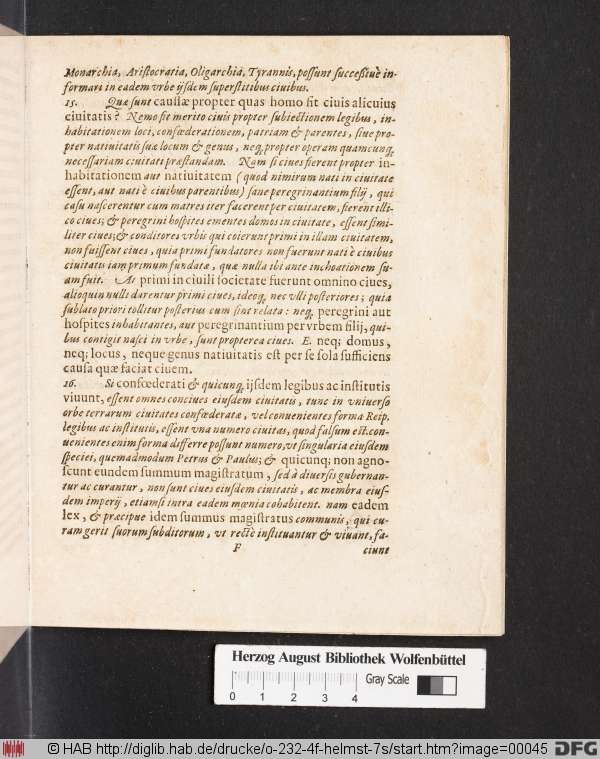 Monarchia, Aristocratia, Oligarchia, Tyrannis, possunt successiuè in-
formari in eadem vrbe ijsdem superstitibus ciuibus.
15. Quæ sunt caussæ propter quas homo fit ciuis alicuius
ciuitatis? Nemo fit merito ciuis propter subiectionem legibus, in-
habitationem loci, confœderationem, patriam & parentes, siue pro-
pter natiuitatis suæ locum & genus, neq; propter operam quamcunq;
necessariam ciuitati præstandam. Nam si ciues fierent propter in-
habitationem aut natiuitatem (quod nimirum nati in ciuitate
essent, aut nati è ciuibus parentibus) sane peregrinantium filij, qui
casu nascerentur cum matres iter facerent per ciuitatem, fierent illi-
co ciues; & peregrini hospites ementes domos in ciuitate, essent simi-
liter ciues; & conditores vrbis qui coierunt primi in illam ciuitatem,
non fuissent ciues, quia primi fundatores non fuerunt nati è ciuibus
ciuitatis iam primum fundatæ, quæ nulla ibi ante inchoationem su-
am fuit. At primi in ciuili societate fuerunt omnino ciues,
alioquin nulli darentur primi ciues, ideoq; nec vlli posteriores; quia
sublato priori tollitur posterius cum sint relata: neq; peregrini aut
hospites inhabitantes, aut peregrinantium per vrbem filij, qui-
bus contigit nasci in vrbe, sunt propterea ciues. E. neq; domus,
neq; locus, neque genus natiuitatis est per se sola sufficiens
causa quæ faciat ciuem.
16. Si confœderati & quicunq; ijsdem legibus ac institutis
viuunt, essent omnes conciues eiusdem ciuitatis, tunc in vniuerso
orbe terrarum ciuitates confœderatæ, vel conuenientes forma Reip.
legibus ac institutis, essent vna numero ciuitas, quod falsum est. con-
uenientes enim forma differre possunt numero, vt singularia eiusdem
speciei, quemadmodum Petrus & Paulus; & quicunq; non agno-
scunt eundem summum magistratum, sed à diuersis gubernan-
tur ac curantur, non sunt ciues eiusdem ciuitatis, ac membra eius-
dem imperij, etiamsi intra eadem mœnia cohabitent. nam eadem
lex, & præcipue idem summus magistratus communis, qui cu-
ram gerit suorum subditorum, vt rectè instituantur & viuant, fa-
F ciunt
Herzog August Bibliothek Wolfenbüttel
0 1 2 3 4 Gray Scale
© HAB http://diglib.hab.de/drucke/o-232-4f-helmst-7s/start.htm?image=00045 DFG